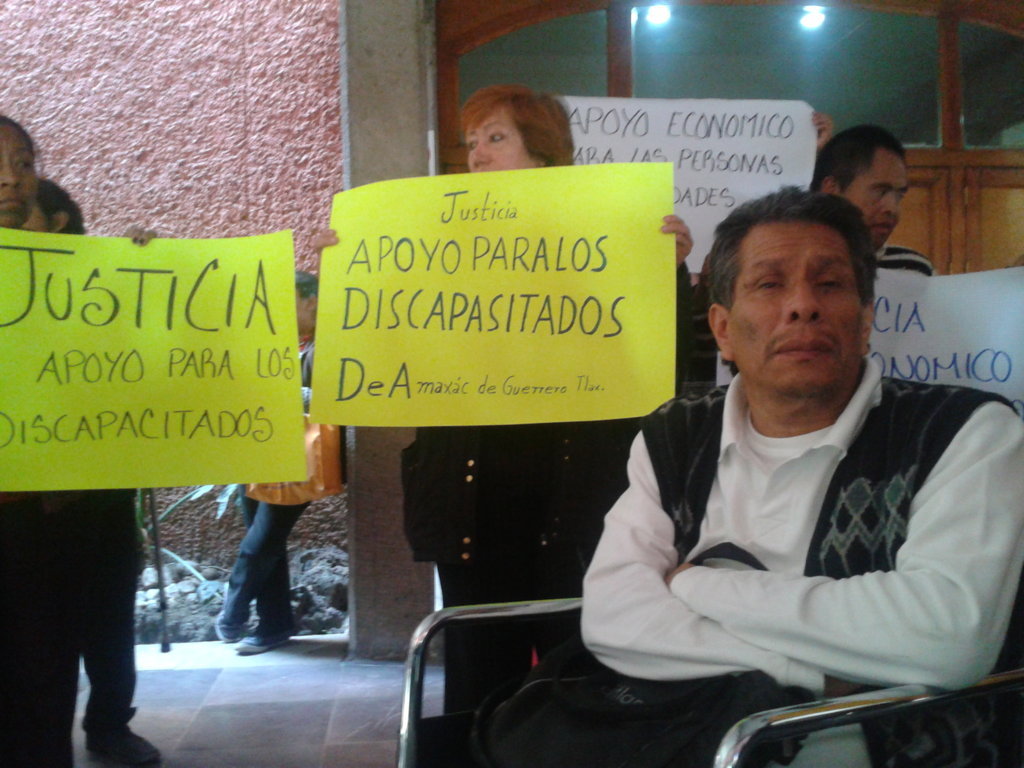 JUSTICIA
APOYO PARA LOS
DISCAPACITADOS
Justicia
APOYO PARA LOS
DISCAPASITADOS
De Amaxác de Guerrero Tlax.
APOYO ECONOMICO
PARA LAS PERSONAS
DADES
CIA
ONOMICO